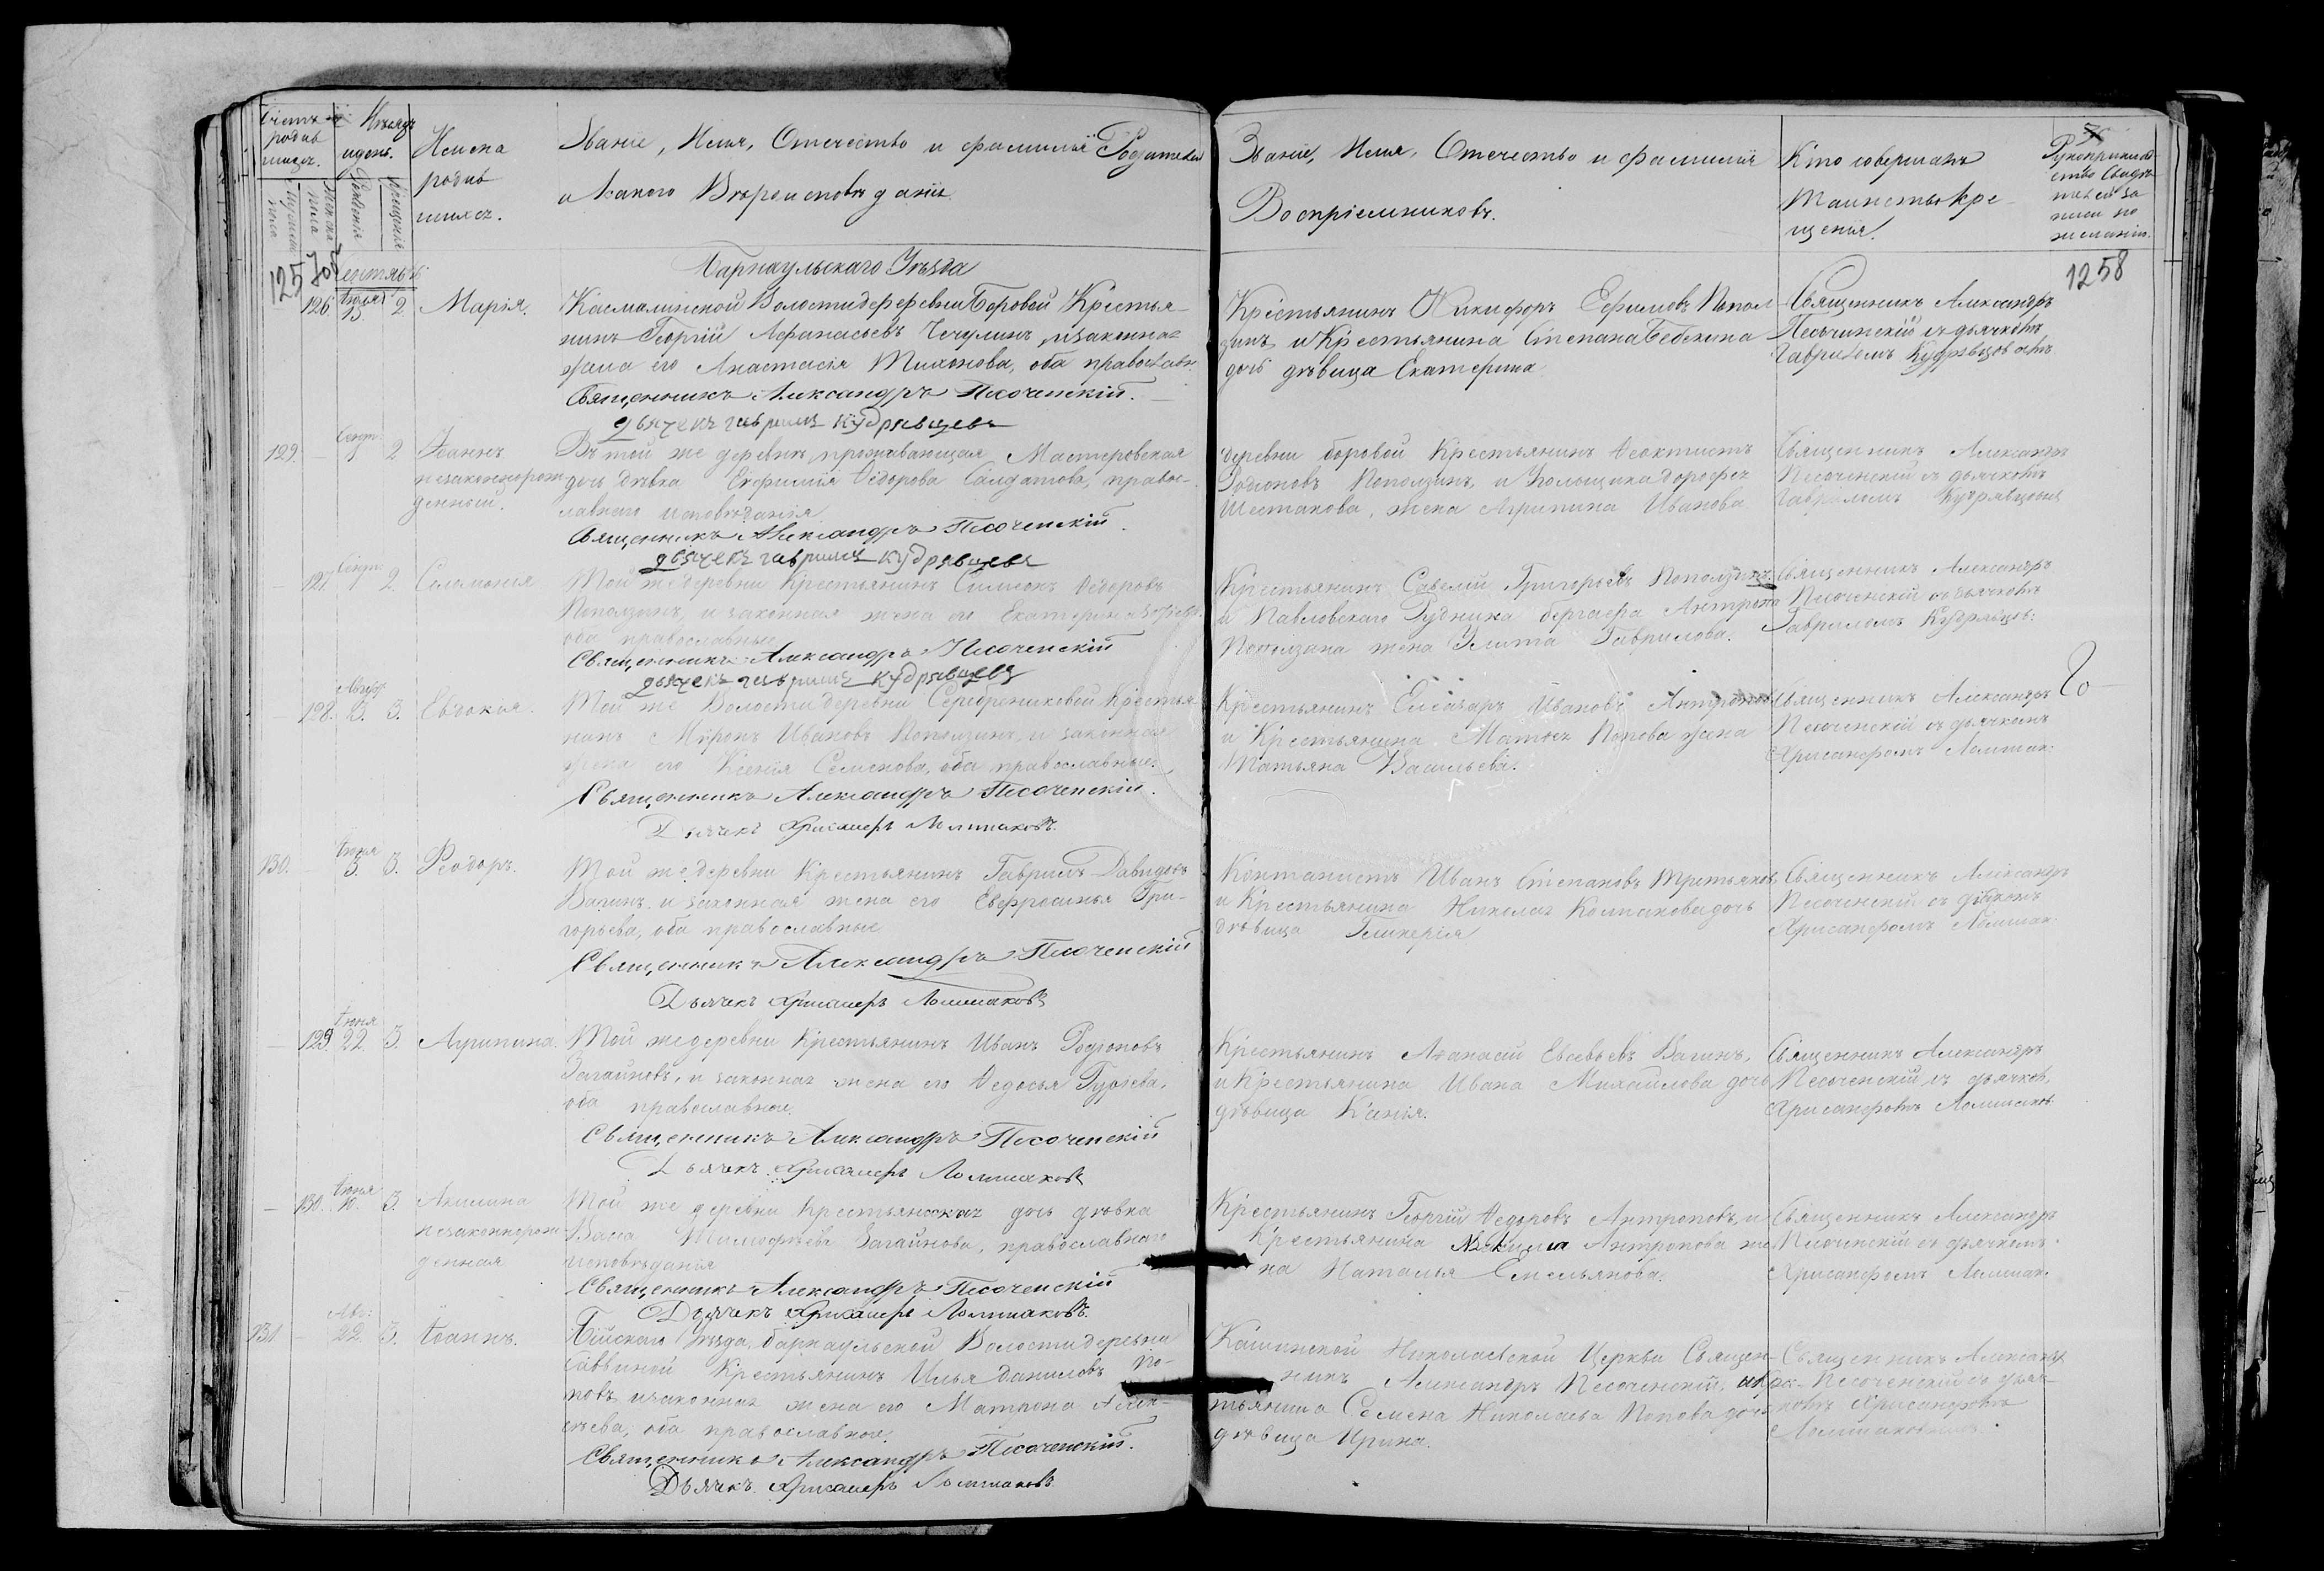 Счетъ родив шихся.
Мѣсяцъ и день.
Имена родив шихся.
Званіе, Имя, Отечество и фамилія Родителей
и какого Вѣроисповѣданія.
Мужеска пола
Женска пола
Рожденія
Крещенія
Званіе, Имя, Отечество и фамилія
Воспріемниковъ.
Кто совершалъ
Таинство Кре-
щенія.
Рукоприкладство свидѣтелей записи по желанію.
1258
125
705
Сентябрь
Барнаульскаго Уѣзда
126. Іюля 15 2 Марія.
Касмалинской Волости деревни Боровой Крестья-
нинъ Георгій Афанасьевъ Чечулинъ, и законная
жена его Анастасія Тихонова, оба православн.
Священникъ Александръ Песоченскій.
дьячекъ гаврилъ кудрявцевъ
Крестьянинъ Никифоръ Ефимовъ Попол-
зинъ и Крестьянина Степана Бебекина
дочь дѣвица Екатерина
Священникъ Александръ
Песоченскій съ дьячкомъ
Гавриломъ Кудрявцовымъ
129. Сентр. 1 2 Іоаннъ
незаконнорож
денный.
Въ той же деревнѣ проживающая Мастеровская
дочь дѣвка Евфимія Ѳедорова Салдатова, правос-
лавнаго исповѣданія
Священникъ Александръ Песоченскій.
дьячекъ гаврилъ кудрявцевъ
деревни боровой Крестьянинъ Ѳеоктистъ
Родіоновъ Поползинъ, и Урольщика дорофея
Шестакова, жена Агрипина Иванова
Священникъ Александръ
Песоченскій съ дьячкомъ
Гавриломъ Кудрявцовы
127. Сентр. 1 2. Соломонія
Той же деревни Крестьянинъ Симеонъ Ѳедоровъ
Поползинъ, и законная жена его Екатерина
оба православные
Священникъ Александръ Песоченскій
дьячекъ гаврилъ кудрявцевъ
Крестьянинъ Савелій Григорьевъ Поползинъ
и Павловскаго Рудника бергаера Антропа
Поползина жена Улита Гаврилова.
Священникъ Александръ
Песоченскій съ дьячкомъ
Гавриломъ Кудрявцов:
128. Авгус. 3. 3. Евдокія.
Той же Волости деревни Серебрениковой Крестья
нинъ Миронъ Ивановъ Поползинъ, и законная
жена его Ксенія Семенова, оба православные.
Священникъ Александръ Песоченскій.
Дьячекъ Хрисанфъ Ломшаковъ.
Крестьянинъ Елеазаръ Ивановъ Антропов
и Крестьянина Матѳея Попова жена
Татьяна Васильева.
Священникъ Александръ
Песоченскій съ дьячкомъ
Хрисанфомъ Ломшак:
130. Іюня 3. 3. Ѳеодоръ.
Той же деревни Крестьянинъ Гаврилъ Давидовъ
Вагинъ и законная жена его Евфросинья Гри-
горьева, оба православные
Священникъ Александръ Песоченскій
Дьячекъ Хрисанфъ Ломшаковъ
Кантанистъ Иванъ Степановъ Третьяковъ
и Крестьянина Николая Колпакова дочь
дѣвица Гликерія
Священникъ Александръ
Песоченскій съ дьячкомъ
Хрисанфомъ Ломшак.
129 Іюня 22 3. Агрипина.
Той же деревни Крестьянинъ Иванъ Родіоновъ
Загайновъ, и законная жена его Ѳедосья Гурьева,
оба православные.
Священникъ Александръ Песоченскій
Дьячекъ Хрисанфъ Ломшаковъ
Крестьянинъ Аѳанасій Евсевьевъ Вагинъ,
и Крестьянина Ивана Михайлова дочь
дѣвица Ксенія.
Священникъ Александръ
Песоченскій съ дьячком.
Хрисанфомъ Ломшаков:
130. Іюня 10. 3. Акилина
незаконнорож
денная
Той же деревни Крестьянская дочь дѣвка
Васа Тимофѣева Загайнова, православнаго
исповѣданія
Священникъ Александръ Песоченскій
Дьячекъ Хрисанфъ Ломшаковъ.
Крестьянинъ Георгій Ѳедоровъ Антроповъ, и
Крестьянина Антропова же
на Наталья Емельянова.
Священникъ Александръ
Песоченскій съ дьячкомъ
Хрисанфомъ Ломшак.
131 Ав: 22. 3. Іоаннъ.
Бійскаго Уѣзда, барнаульской Волости деревни
Саввиной Крестьянинъ Илья даниловъ По-
повъ, и законная жена его Матрона Алек-
сѣева, оба православные.
Священникъ Александръ Песоченскій.
Дьячекъ Хрисанфъ Ломшаковъ
Кашинской Николаевской Церкви Священ-
никъ Александръ Песоченскій, и крес-
тьянина Семена Николаева Попова дочь
дѣвица Ирина.
Священникъ Александръ
Песоченскій съ дьяч-
комъ Хрисанфомъ
Ломшаковымъ